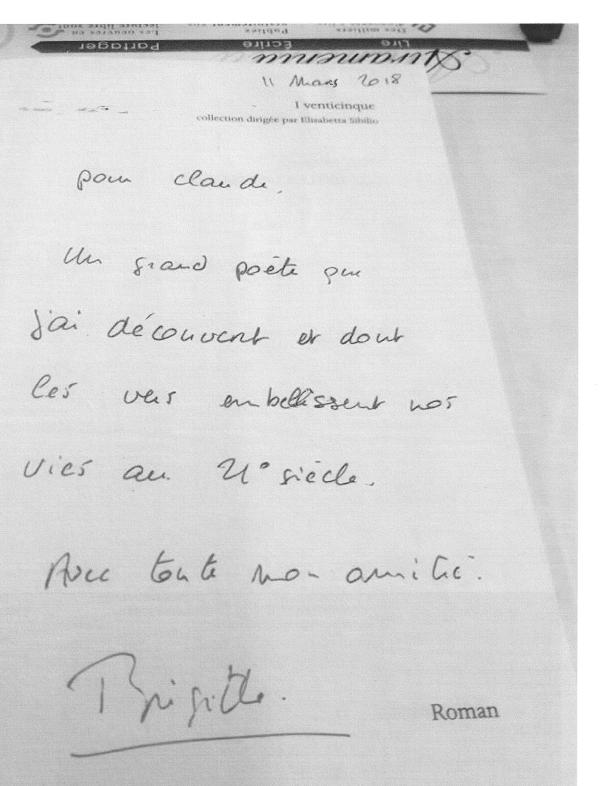 Des milliers
Publiez
Les oeuvres en
lecture libre sont
Lire
Écrire
Partager
11 Mars 2018
I venticinque
collection dirigée par Elisabetta Sibilio
pour claude,
Un grand poète que
j'ai découvert et dont
les vers embellissent nos
vies au 21° siècle.
Avec toute mon amitié.
Brigitte.
Roman